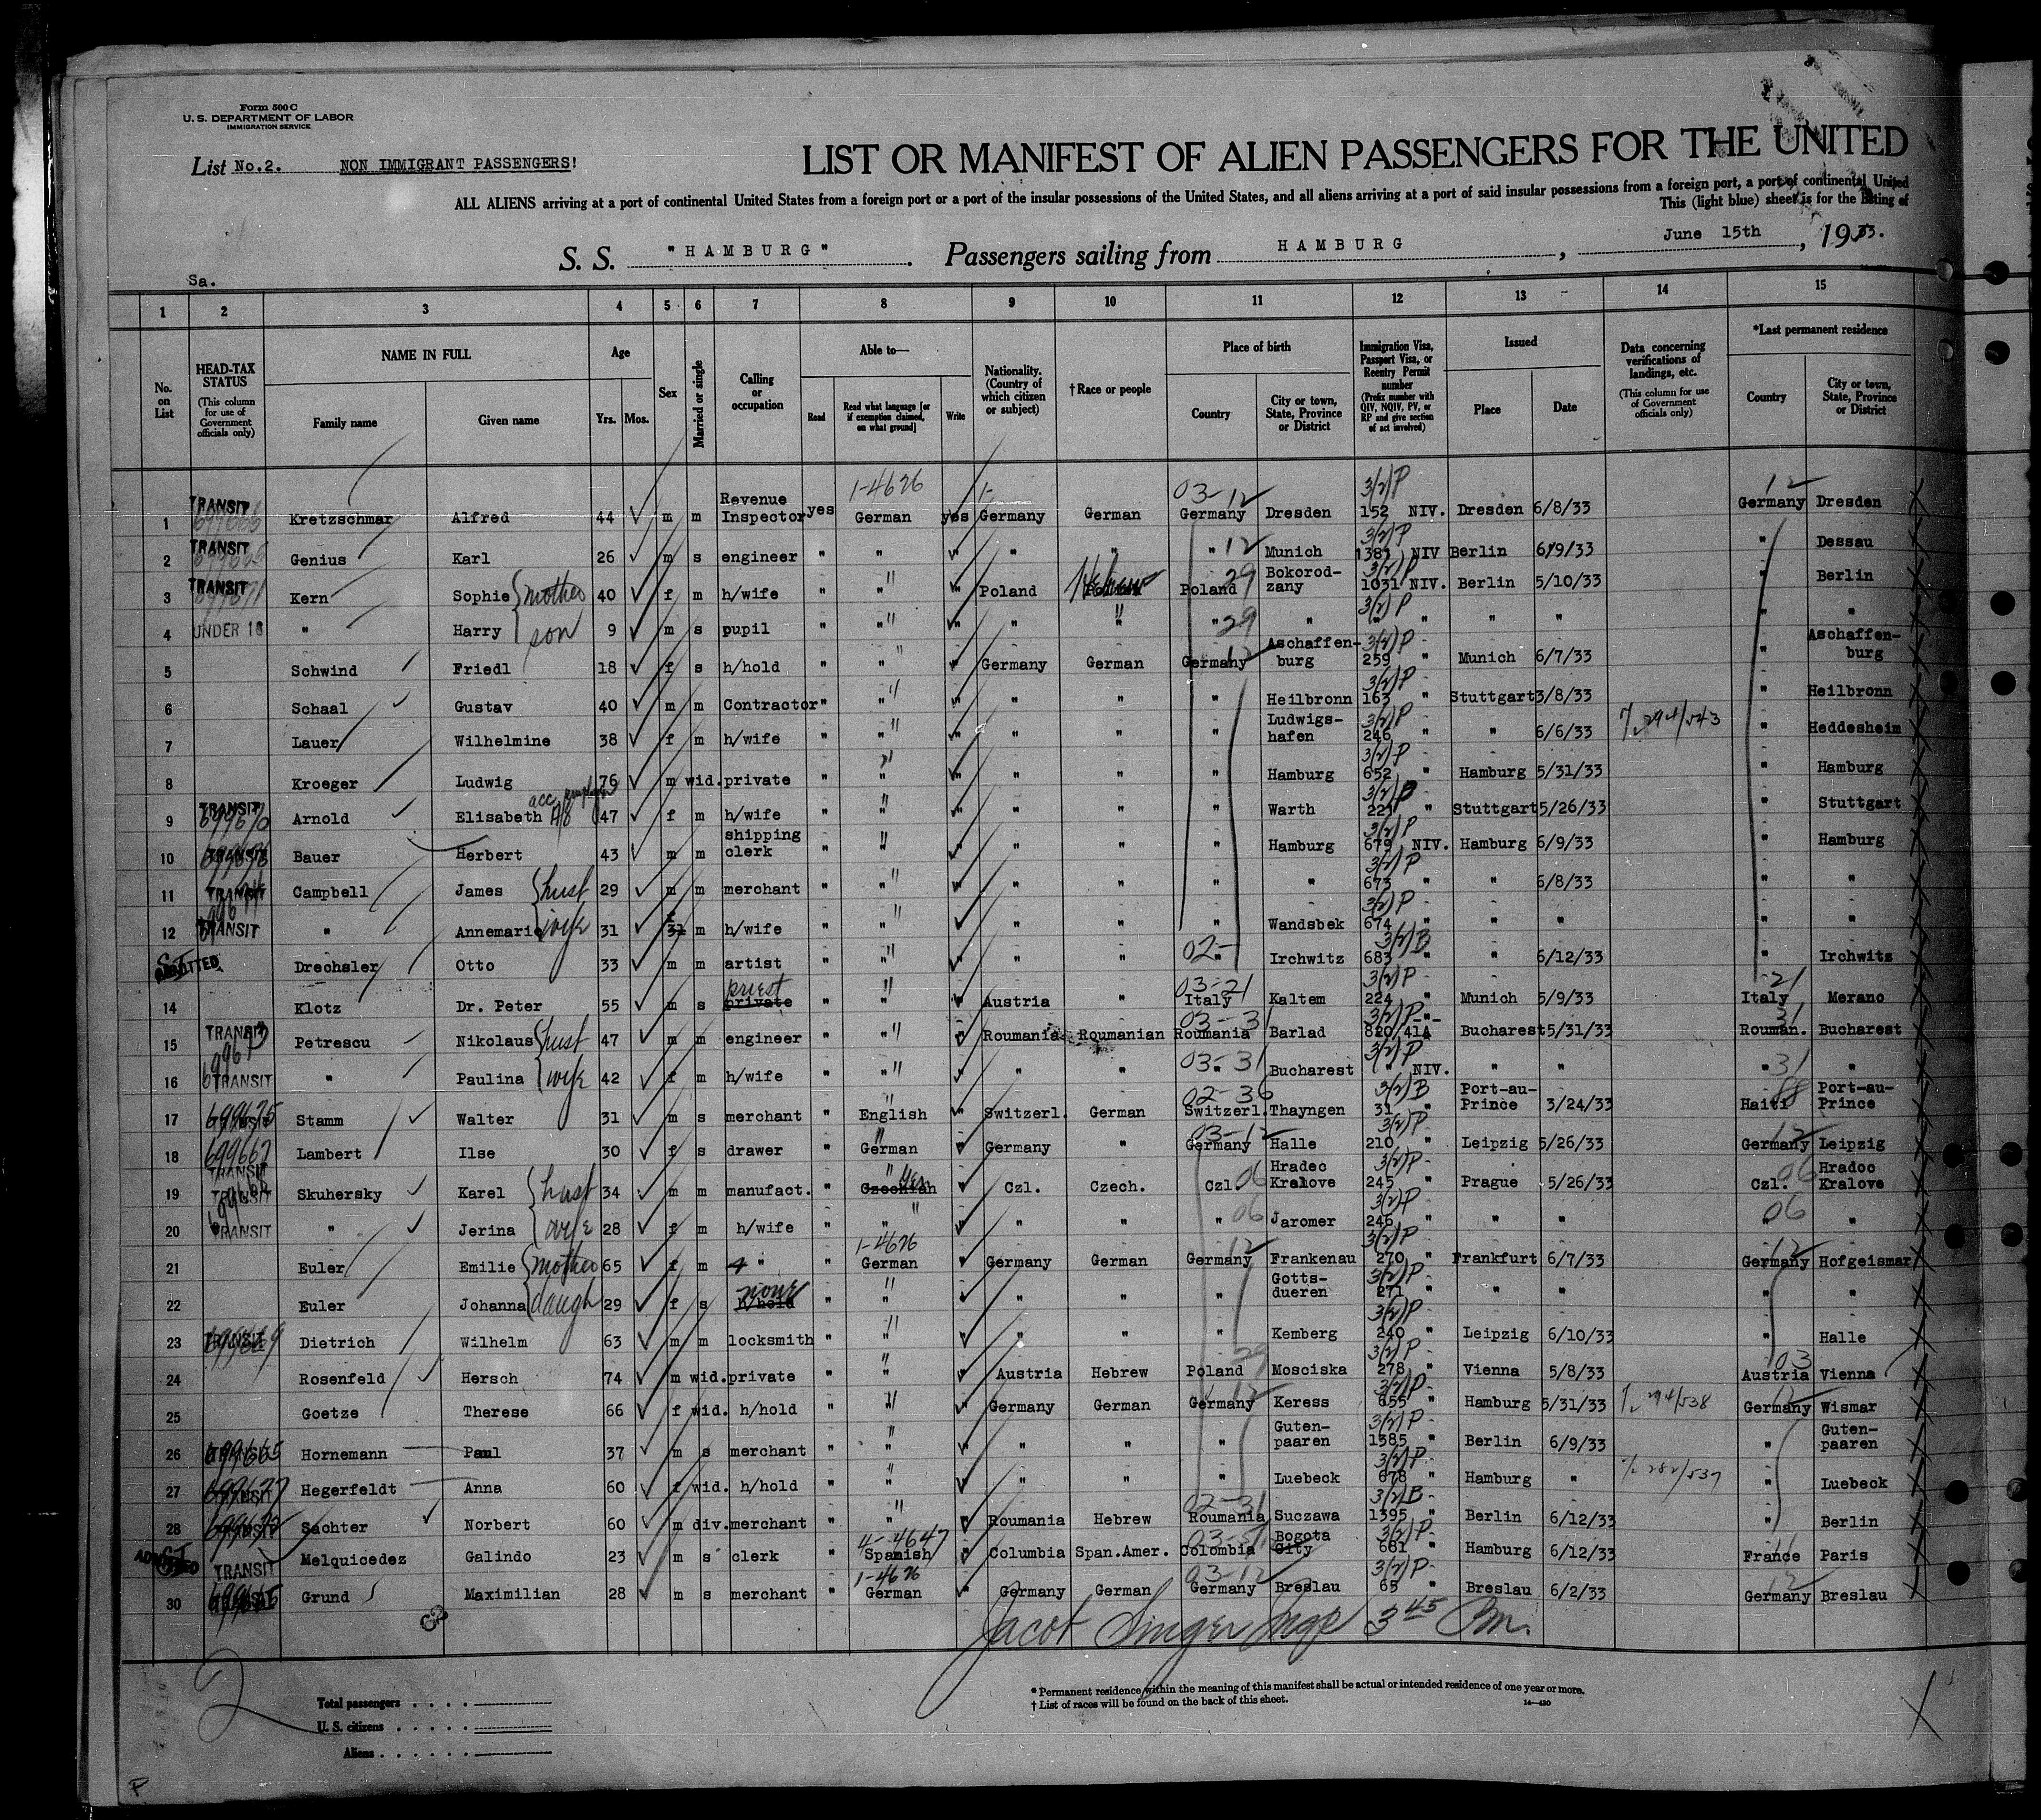 Form 500 C
U. S. DEPARTMENT OF LABOR
IMMIGRATION SERVICE
List No.2. NON IMMIGRANT PASSENGERS!
LIST OR MANIFEST OF ALIEN PASSENGERS FOR THE UNITED
ALL ALIENS arriving at a port of continental United States from a foreign port or a port of the insular possessions of the United States, and all aliens arriving at a port of said insular possessions from a foreign port, a port of continental United
This (light blue) sheet is for the listing of
S. S. "HAMBURG". Passengers sailing from HAMBURG, June 15th, 1933.
Sa.
1 2 3 4 5 6 7 8 9 10 11 12 13 14 15
No. on List
HEAD-TAX STATUS (This column for use of Government officials only)
NAME IN FULL Family name Given name
Age Yrs. Mos.
Sex
Married or single
Calling or occupation
Able to— Read Read what language [or if exemption claimed, on what ground] Write
Nationality. (Country of which citizen or subject)
†Race or people
Place of birth Country City or town, State, Province or District
Immigration Visa, Passport Visa, or Reentry Permit number (Prefix number with QIV, NQIV, PV, or RP and give section of act involved)
Issued Place Date
Data concerning verifications of landings, etc. (This column for use of Government officials only)
*Last permanent residence Country City or town, State, Province or District
1-4676 03-12 3(2)P 12
1 TRANSIT Kretzschmar Alfred 44 m m Revenue Inspector yes German yes Germany German Germany Dresden 152 NIV. Dresden 6/8/33 Germany Dresden
2 TRANSIT Genius Karl 26 m s engineer " " " " " " 12 Munich 3(2)P 1381 NIV Berlin 6/9/33 " Dessau
3 TRANSIT Kern Sophie mother 40 f m h/wife " " " Poland Hebrew Poland 29 Bokorod-zany 3(2)P 1031 NIV. Berlin 5/10/33 " Berlin
4 UNDER 16 " Harry son 9 m s pupil " " " " " " 29 " 3(2)P " " " " "
5 Schwind Friedl 18 f s h/hold " " " Germany German Germany 12 Aschaffen-burg 3(2)P 259 " Munich 6/7/33 " Aschaffen-burg
6 Schaal Gustav 40 m m Contractor " " " " " " Heilbronn 3(2)P 163 " Stuttgart 3/8/33 " Heilbronn
7 Lauer Wilhelmine 38 f m h/wife " " " " " " Ludwigs-hafen 3(2)P 246 " " 6/6/33 " Heddesheim
8 Kroeger Ludwig 76 m wid. private " " " " " " Hamburg 3(2)P 652 " Hamburg 5/31/33 " Hamburg
9 TRANSIT 699670 Arnold Elisabeth 47 f m h/wife " " " " " " Warth 3(2)P 221 " Stuttgart 5/26/33 " Stuttgart
10 TRANSIT Bauer Herbert 43 m m shipping clerk " " " " " " Hamburg 3(2)P 679 NIV. Hamburg 6/9/33 " Hamburg
11 TRANSIT Campbell James husb 29 m m merchant " " " " " " " 3(2)P 673 " 6/8/33 " "
12 TRANSIT " Annemarie wife 31 f m h/wife " " " " " " Wandsbek 3(2)P 674 " " " " "
ADMITTED Drechsler Otto 33 m m artist " " " " " 02- " Irchwitz 3(2)B 683 " " 6/12/33 " Irchwitz
14 Klotz Dr. Peter 55 m s private priest " " " Austria " 03-21 Italy Kaltem 3(2)P 224 " Munich 5/9/33 21 Italy Merano
15 TRANSIT Petrescu Nikolaus husb 47 m m engineer " " " Roumania Roumanian 03-31 Roumania Barlad 3(2)P 820/41A Bucharest 5/31/33 31 Rouman. Bucharest
16 TRANSIT " Paulina wife 42 f m h/wife " " " " " 03-31 " Bucharest 3(2)P " NIV. " " 31 " "
17 699675 Stamm Walter 31 m s merchant " English " Switzerl. German 02-36 Switzerl. Thayngen 3(2)B 31 " Port-au-Prince 3/24/33 Haiti Port-au-Prince
18 699667 TRANSIT Lambert Ilse 30 f s drawer " German " Germany " 03-12 Germany Halle 3(2)P 210 " Leipzig 5/26/33 12 Germany Leipzig
19 TRANSIT Skuhersky Karel husb 34 m m manufact. " Czechian Ger. " Czl. Czech. Czl 06 Hradec Kralove 3(2)P 245 " Prague 5/26/33 06 Czl. Hradoc Kralove
20 TRANSIT " Jerina wife 28 f m h/wife " " " " " " 06 Jaromer 3(2)P 246 " " " 06 " "
21 Euler Emilie mother 65 f m " " 1-4676 German " Germany German Germany 12 Frankenau 3(2)P 270 " Frankfurt 6/7/33 12 Germany Hofgeismar
22 Euler Johanna daugh 29 f s h/hold none " " " " " " Gotts-dueren 3(2)P 271 " " " " "
23 TRANSIT Dietrich Wilhelm 63 m m locksmith " " " " " " Kemberg 3(2)P 240 " Leipzig 6/10/33 " Halle
24 Rosenfeld Hersch 74 m wid. private " " " Austria Hebrew Poland 29 Mosciska 3(2)P 278 " Vienna 5/8/33 03 Austria Vienna
25 Goetze Therese 66 f wid. h/hold " " " Germany German Germany 12 Keress 3(2)P 655 " Hamburg 5/31/33 12 Germany Wismar
26 Hornemann Paul 37 m s merchant " " " " " " Guten-paaren 3(2)P 1385 " Berlin 6/9/33 " Guten-paaren
27 TRANSIT Hegerfeldt Anna 60 f wid. h/hold " " " " " " Luebeck 3(2)P 678 " Hamburg " " Luebeck
28 TRANSIT Sachter Norbert 60 m div. merchant " " " Roumania Hebrew 02-31 Roumania Suczawa 3(2)B 1395 " Berlin 6/12/33 " Berlin
ADMITTED TRANSIT Melquicedez Galindo 23 m s clerk " 4-4647 Spanish " Columbia Span.Amer. Colombia Bogota City 3(2)P 681 " Hamburg 6/12/33 France Paris
30 Grund Maximilian 28 m s merchant " 1-4676 German " Germany German 03-12 Germany Breslau 3(2)P 65 " Breslau 6/2/33 12 Germany Breslau
Jacob Singer Insp 3 45 Pm.
2
Total passengers
U. S. citizens
Aliens
* Permanent residence within the meaning of this manifest shall be actual or intended residence of one year or more.
† List of races will be found on the back of this sheet.
14—430
P